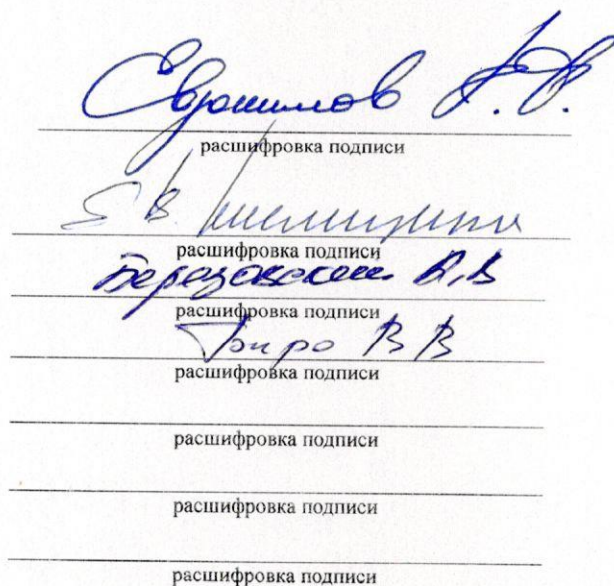 расшифровка подписи
расшифровка подписи
Березовский В.В
расшифровка подписи
Биро В В
расшифровка подписи
расшифровка подписи
расшифровка подписи
расшифровка подписи